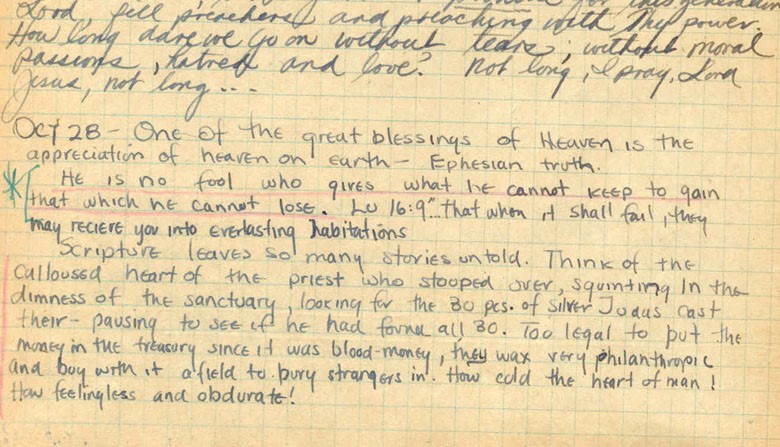 for this generation
Lord, fill preachers and preaching with Thy power.
How long dare we go on without tears, without moral
passions, hatred and love? Not long, I pray, Lord
Jesus, not long...
OCT 28 - One of the great blessings of Heaven is the
appreciation of heaven on earth - Ephesian truth.
He is no fool who gives what he cannot keep to gain
that which he cannot lose. Lu 16:9 "...that when it shall fail, they
may recieve you into everlasting habitations
Scripture leaves so many stories untold. Think of the
calloused heart of the priest who stooped over, squinting in the
dimness of the sanctuary, looking for the 30 pcs. of silver Judas cast
their - pausing to see if he had found all 30. Too legal to put the
money in the treasury since it was blood-money, they wax very philanthropic
and buy with it a field to bury strangers in. How cold the heart of man!
How feelingless and obdurate!